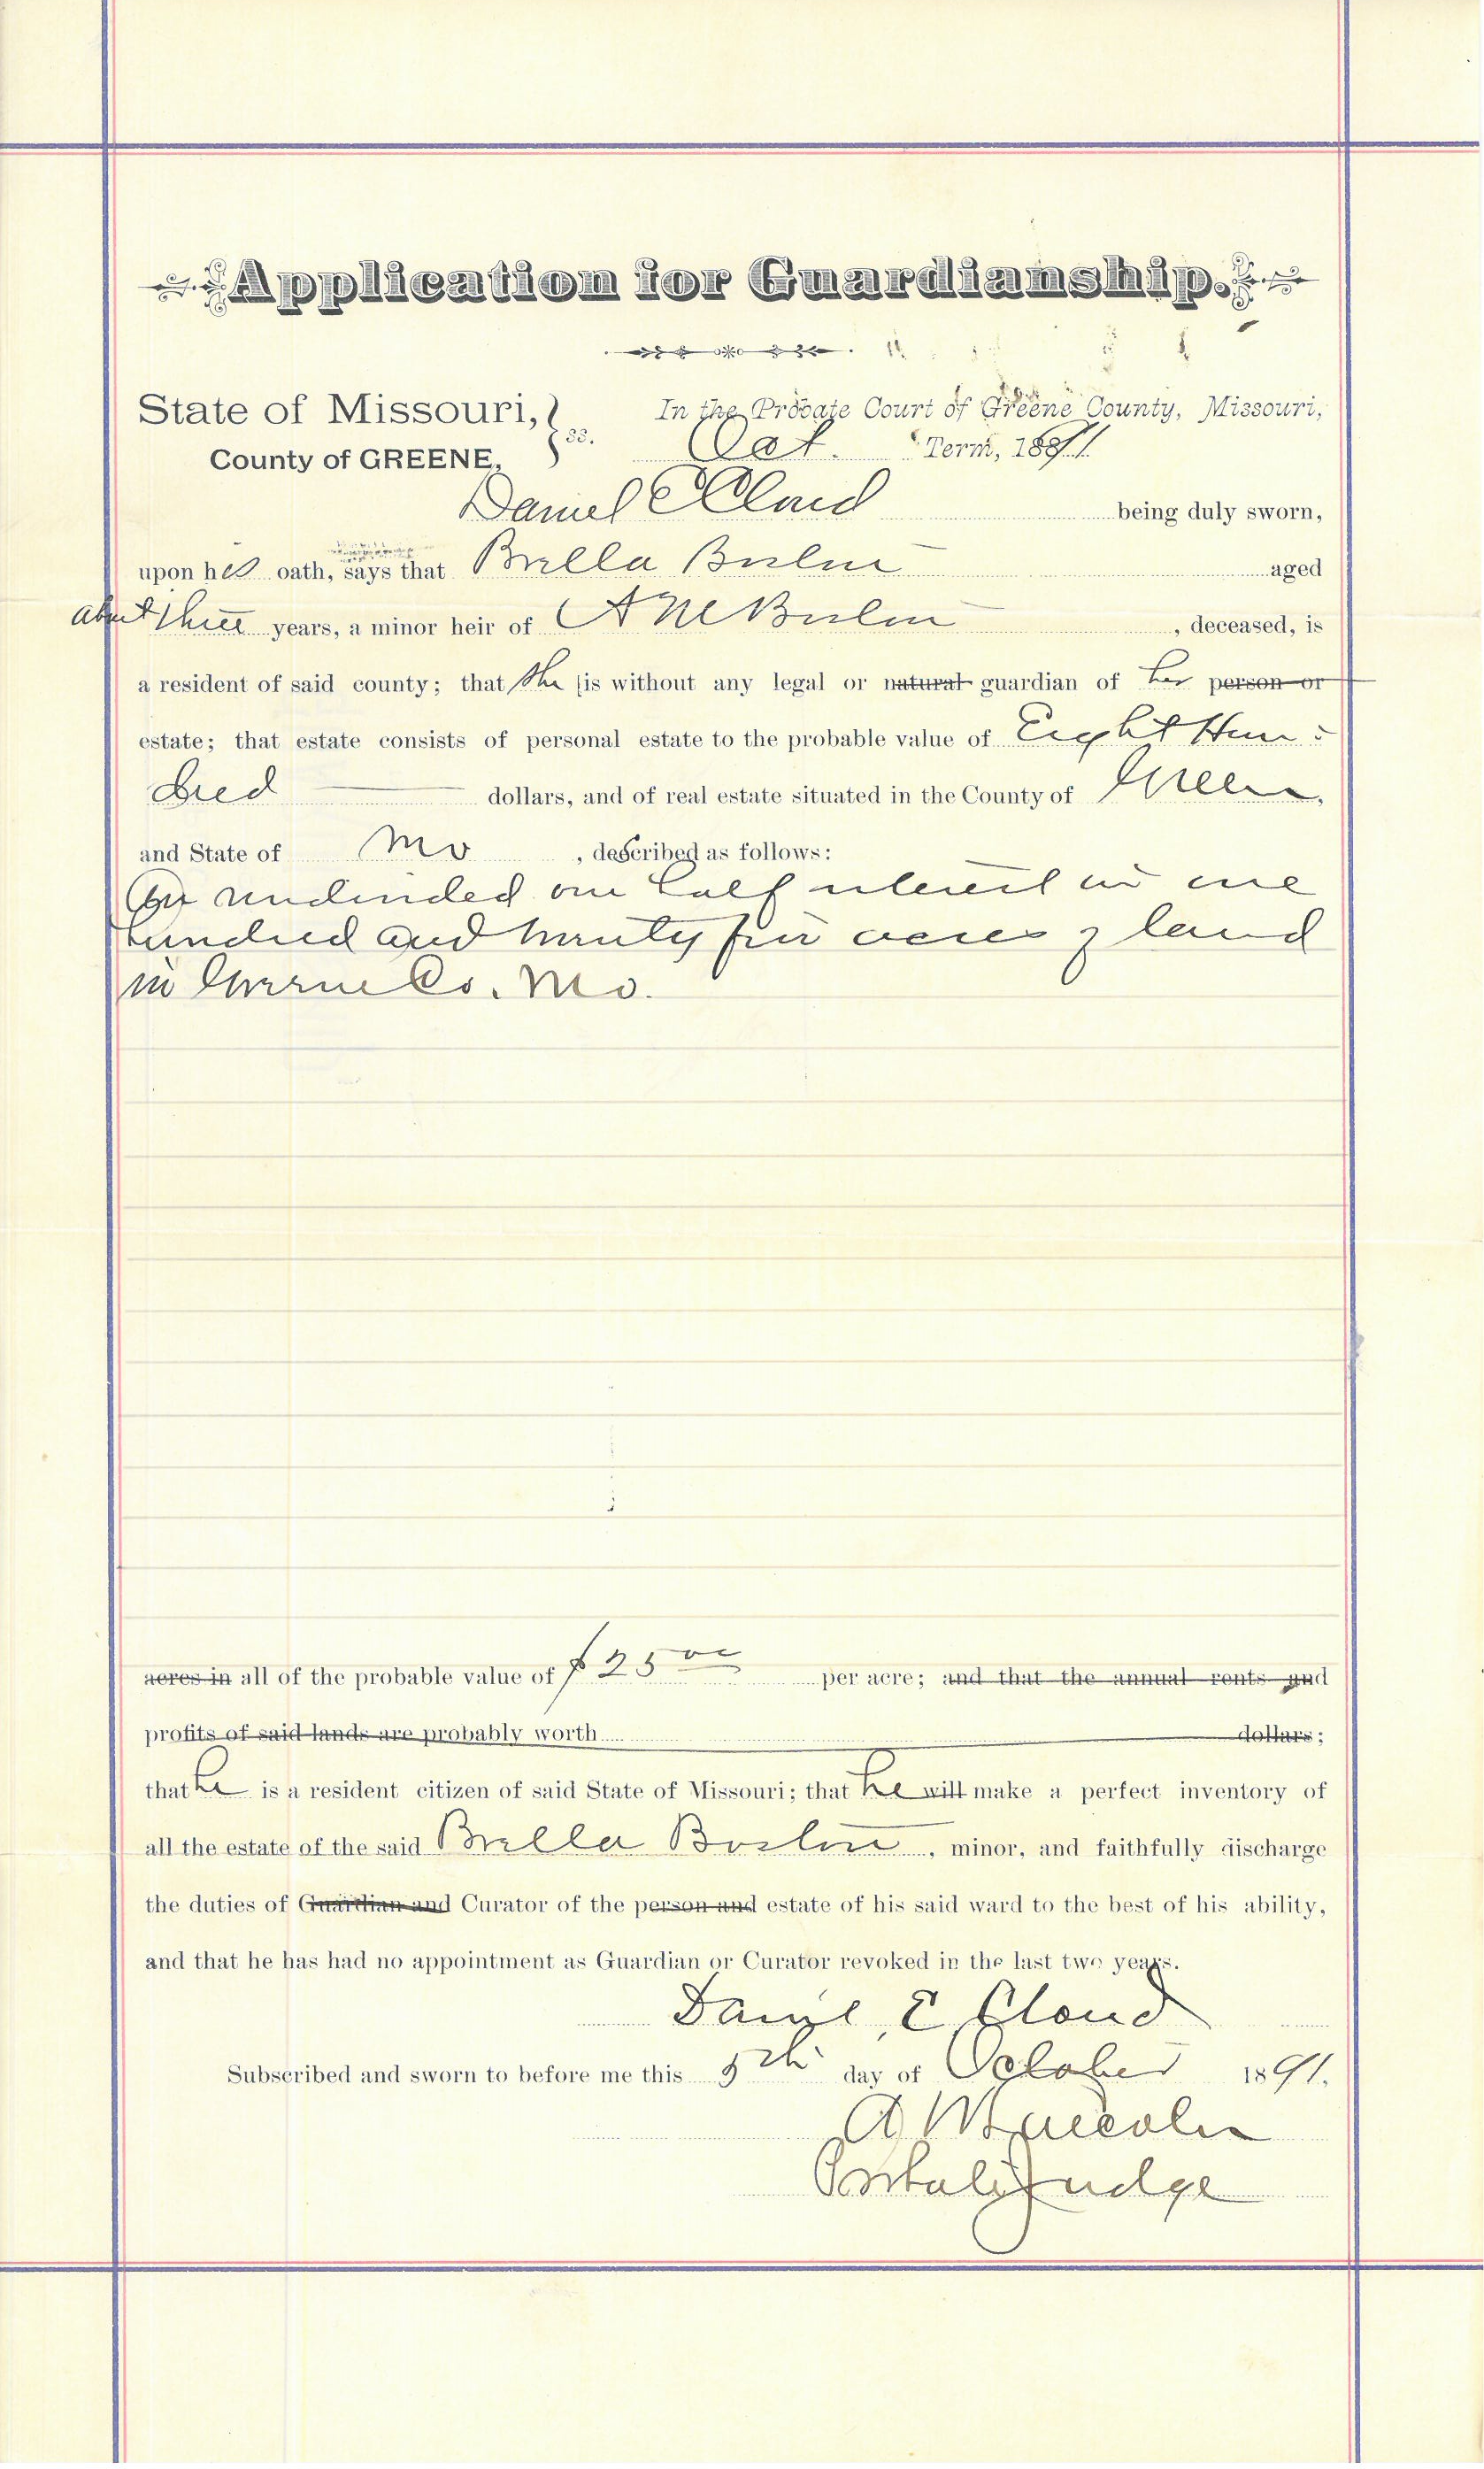 Application for Guardianship.
State of Missouri, } ss. In the Probate Court of Greene County, Missouri,
County of GREENE, Oct. Term, 1891
Daniel E Cloud being duly sworn,
upon his oath, says that Brella Boston aged
about three years, a minor heir of A M Boston, deceased, is
a resident of said county; that she is without any legal or natural guardian of her person or
estate; that estate consists of personal estate to the probable value of Eight Hun-
dred dollars, and of real estate situated in the County of Green,
and State of Mo, described as follows:
An undivided one half interest in one
hundred and twenty five acres of land
in Greene Co. Mo.
acres in all of the probable value of $25 00 per acre; and that the annual rents and
profits of said lands are probably worth dollars;
that he is a resident citizen of said State of Missouri; that he will make a perfect inventory of
all the estate of the said Brella Boston, minor, and faithfully discharge
the duties of Guardian and Curator of the person and estate of his said ward to the best of his ability,
and that he has had no appointment as Guardian or Curator revoked in the last two years.
Daniel E Cloud
Subscribed and sworn to before me this 5th day of October 1891.
A M Lincoln
Probate Judge